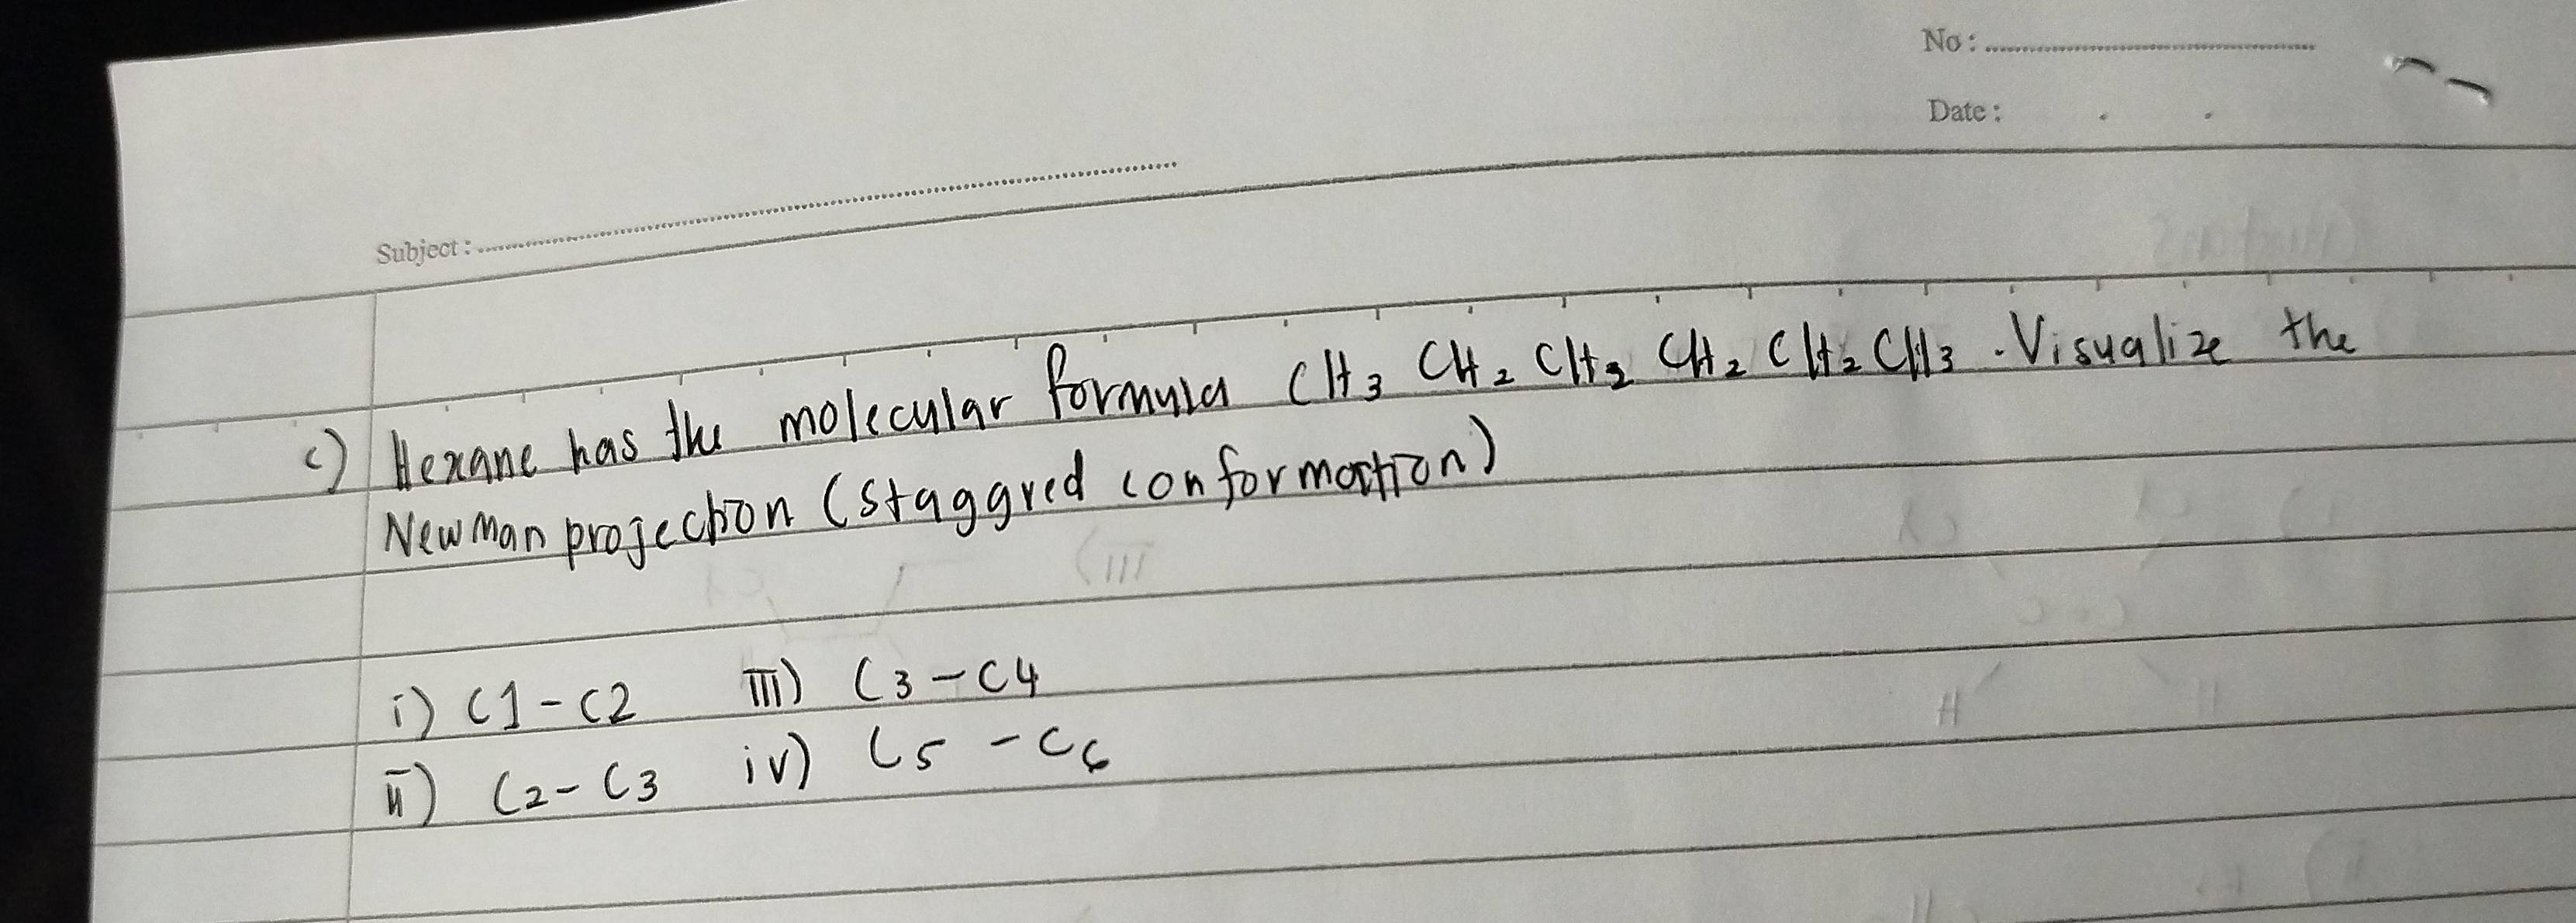 No :
Date :
Subject :
c) Hexane has the molecular formula CH3 CH2 CH2 CH2 CH2 CH3 . Visualize the
Newman projection (staggred conformation)
i) C1 - C2 iii) C3 - C4
ii) C2 - C3 iv) C5 - C6